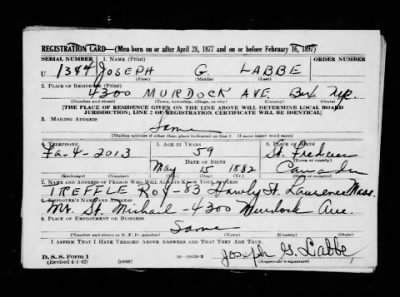 REGISTRATION CARD—(Men born on or after April 28, 1877 and on or before February 16, 1897)
SERIAL NUMBER 1. NAME (Print) ORDER NUMBER
U 1344 JOSEPH G. LABBE
(First) (Middle) (Last)
2. PLACE OF RESIDENCE (Print)
4300 MURDOCK AVE
(Number and street) (Town, township, village, or city) (County) (State)
[THE PLACE OF RESIDENCE GIVEN ON THE LINE ABOVE WILL DETERMINE LOCAL BOARD
JURISDICTION; LINE 2 OF REGISTRATION CERTIFICATE WILL BE IDENTICAL]
3. MAILING ADDRESS
Same
(Mailing address if other than place indicated on line 2. If same insert word same)
4. TELEPHONE 5. AGE IN YEARS 6. PLACE OF BIRTH
Fa-4-2013 59 St.
DATE OF BIRTH
May 15 1882 Canada
7. NAME AND ADDRESS OF PERSON WHO WILL ALWAYS KNOW YOUR ADDRESS
TREFFLE ROY-83 St. Lawrence Mass.
8. EMPLOYER'S NAME AND ADDRESS
Mt. St. Michael-4300 Murdock Ave.
9. PLACE OF EMPLOYMENT OR BUSINESS
Same
(Number and street or R. F. D. number) (Town) (County) (State)
I AFFIRM THAT I HAVE VERIFIED ABOVE ANSWERS AND THAT THEY ARE TRUE.
D. S. S. Form 1
(Revised 4-1-42) Joseph G. Labbe
(Registrant's signature)